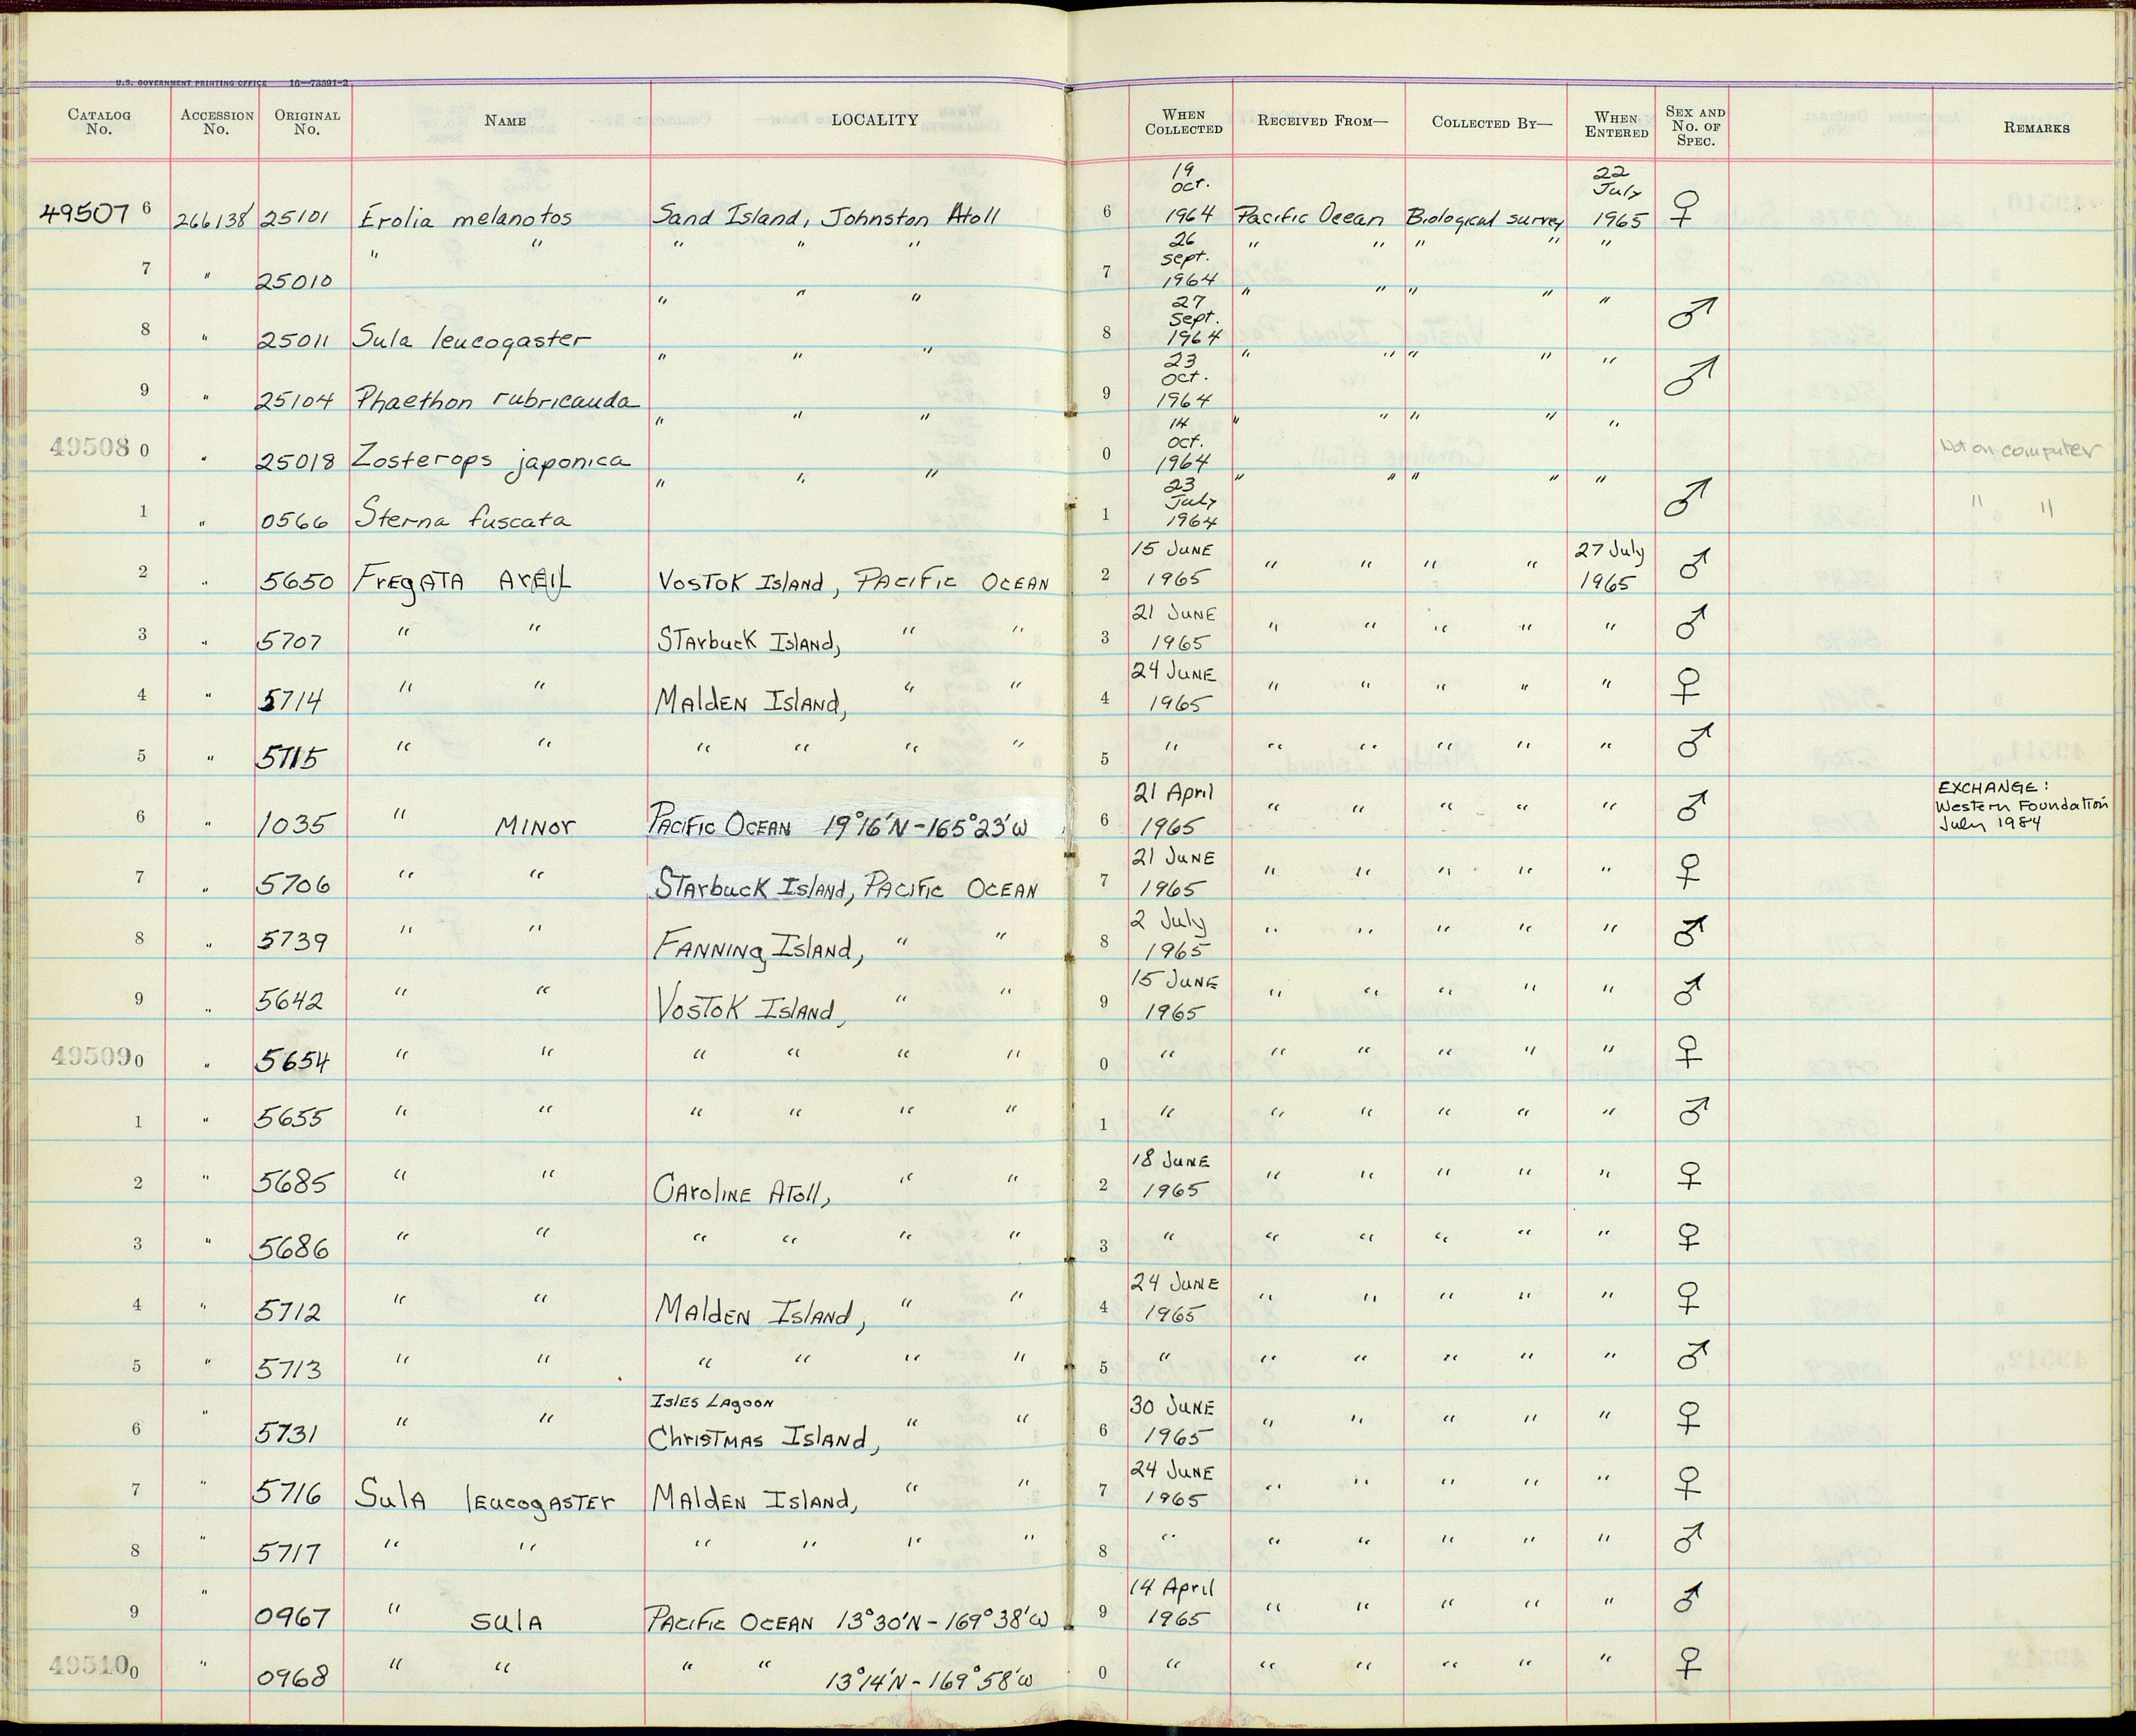 U.S. GOVERNMENT PRINTING OFFICE 16—73591-2
CATALOG No. ACCESSION No. ORIGINAL No. NAME LOCALITY WHEN COLLECTED RECEIVED FROM— COLLECTED BY— WHEN ENTERED SEX AND No. OF SPEC. REMARKS
49507 6 266138 25101 Erolia melanotos Sand Island, Johnston Atoll 6 19 Oct. 1964 Pacific Ocean Biological survey 22 July 1965 ♀
7 " 25010 " " " " " 7 26 Sept. 1964 " " " " "
8 " 25011 Sula leucogaster " " " 8 27 Sept. 1964 " " " " " ♂
9 " 25104 Phaethon rubricauda " " " 9 23 Oct. 1964 " " " " " ♂
49508 0 " 25018 Zosterops japonica " " " 0 14 Oct. 1964 " " " " " Not on computer
1 " 0566 Sterna fuscata " " " 1 23 July 1964 " " " " " ♂ " "
2 " 5650 FREGATA ARIEL VOSTOK ISLAND, PACIFIC OCEAN 2 15 JUNE 1965 " " " " 27 July 1965 ♂
3 " 5707 " " STARBUCK ISLAND, " " 3 21 JUNE 1965 " " " " " ♂
4 " 5714 " " MALDEN ISLAND, " " 4 24 JUNE 1965 " " " " " ♀
5 " 5715 " " " " " " 5 " " " " " " ♂
6 " 1035 " MINOR PACIFIC OCEAN 19°16'N-165°23'W 6 21 April 1965 " " " " " ♂ EXCHANGE: Western Foundation July 1984
7 " 5706 " " STARBUCK ISLAND, PACIFIC OCEAN 7 21 JUNE 1965 " " " " " ♀
8 " 5739 " " FANNING ISLAND, " " 8 2 July 1965 " " " " " ♂
9 " 5642 " " VOSTOK ISLAND, " " 9 15 JUNE 1965 " " " " " ♂
49509 0 " 5654 " " " " " " 0 " " " " " " ♀
1 " 5655 " " " " " " 1 " " " " " " ♂
2 " 5685 " " CAROLINE ATOLL, " " 2 18 JUNE 1965 " " " " " ♀
3 " 5686 " " " " " " 3 " " " " " " ♀
4 " 5712 " " MALDEN ISLAND, " " 4 24 JUNE 1965 " " " " " ♀
5 " 5713 " " " " " " 5 " " " " " " ♂
6 " 5731 " " ISLES LAGOON CHRISTMAS ISLAND, " " 6 30 JUNE 1965 " " " " " ♀
7 " 5716 SULA LEUCOGASTER MALDEN ISLAND, " " 7 24 JUNE 1965 " " " " " ♀
8 " 5717 " " " " " " 8 " " " " " " ♂
9 " 0967 " SULA PACIFIC OCEAN 13°30'N-169°38'W 9 14 April 1965 " " " " " ♂
49510 0 " 0968 " " " " 13°14'N-169°58'W 0 " " " " " " ♀